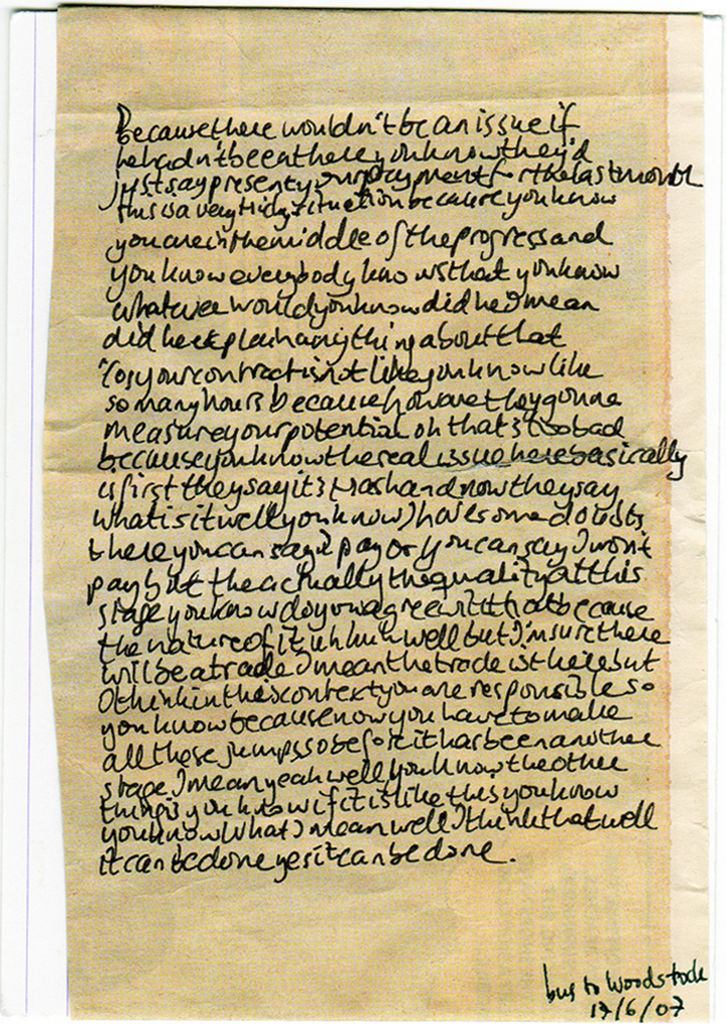 Becausetherewouldn'tbeanissueif
hehadn'tbeenthereyouknowthey'd
justsaypresentyourpaymentforthelastmonth
thisisaverytrickysituationbecauseyouknow
youareinthemiddleoftheprogressand
youknoweverybodyknowsthatyouknow
whateverwouldyouknowdidheImean
didheexplainanythingaboutthat
'cosyourcontractisnotlikeyouknowlike
somanyhoursbecausehowaretheygonna
measureyourpotentialohthatstoobad
becauseyouknowtherealissueherebasically
isfirsttheysayit'strashandnowtheysay
whatisitwellyouknowIhavesomedoubts
thereyoucansayIpayoryoucansayIwon't
paybuttheactuallythequalityatthis
stageyouknowdoyouagreewiththatbecause
thenatureofituhhuhwellbutI'msurethere
willbeatradeImeanthetradeistherebut
Ithinkinthiscontextyouareresponsibleso
youknowbecausenowyouhavetomake
allthesejumpssobeforeithasbeenanother
stageImeanyeahwellyouknowtheother
thingisyouknowifitislikethisyouknow
youknowwhatImeanwellIthinkthatwell
itcanbedoneyesitcanbedone.
bus to Woodstock
17/6/07